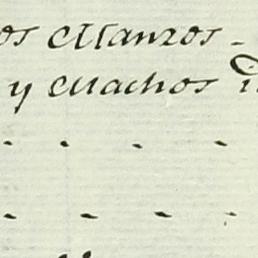 os Manzos -
y Machos